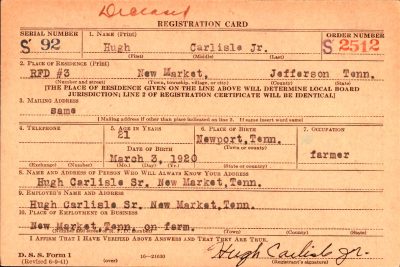 Deceased
REGISTRATION CARD
SERIAL NUMBER 1. Name (Print) ORDER NUMBER
S 92 Hugh Carlisle Jr. S 2512
(First) (Middle) (Last)
2. Place of Residence (Print)
RFD #3 New Market, Jefferson Tenn.
(Number and street) (Town, township, village, or city) (County) (State)
[THE PLACE OF RESIDENCE GIVEN ON THE LINE ABOVE WILL DETERMINE LOCAL BOARD
JURISDICTION; LINE 2 OF REGISTRATION CERTIFICATE WILL BE IDENTICAL]
3. Mailing Address
same
[Mailing address if other than place indicated on line 2. If same insert word same]
4. Telephone 5. Age in Years 6. Place of Birth 7. Occupation
21 Newport, Tenn.
Date of Birth (Town or county)
March 3, 1920 farmer
(Exchange) (Number) (Mo.) (Day) (Yr.) (State or country)
8. Name and Address of Person Who Will Always Know Your Address
Hugh Carlisle Sr. New Market, Tenn.
9. Employer's Name and Address
Hugh Carlisle Sr. New Market, Tenn.
10. Place of Employment or Business
New Market, Tenn. on farm.
(Number and street or R. F. D. number) (Town) (County) (State)
I Affirm That I Have Verified Above Answers and That They Are True.
D. S. S. Form 1 16—21630 Hugh Carlisle Jr.
(Revised 6-9-41) (Registrant's signature)